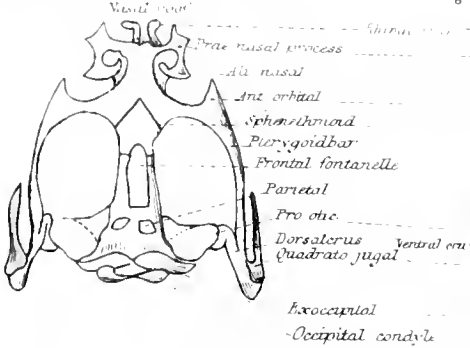 Prae nasal process
Ali nasal
Ant orbital
Sphenethmoid
Pterygoid bar
Frontal fontanelle
Parietal
Pro otic
Dorsal crus Ventral
Quadrato jugal
Exoccipital
Occipital condyle